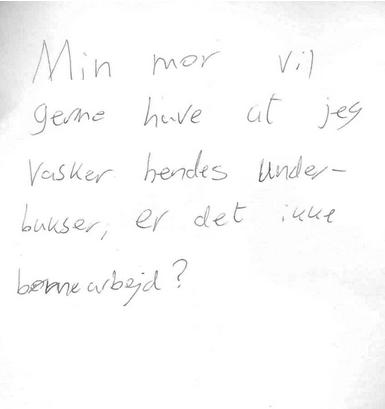 Min mor vil
gerne have at jeg
vasker hendes under-
bukser, er det ikke
børnearbejd?